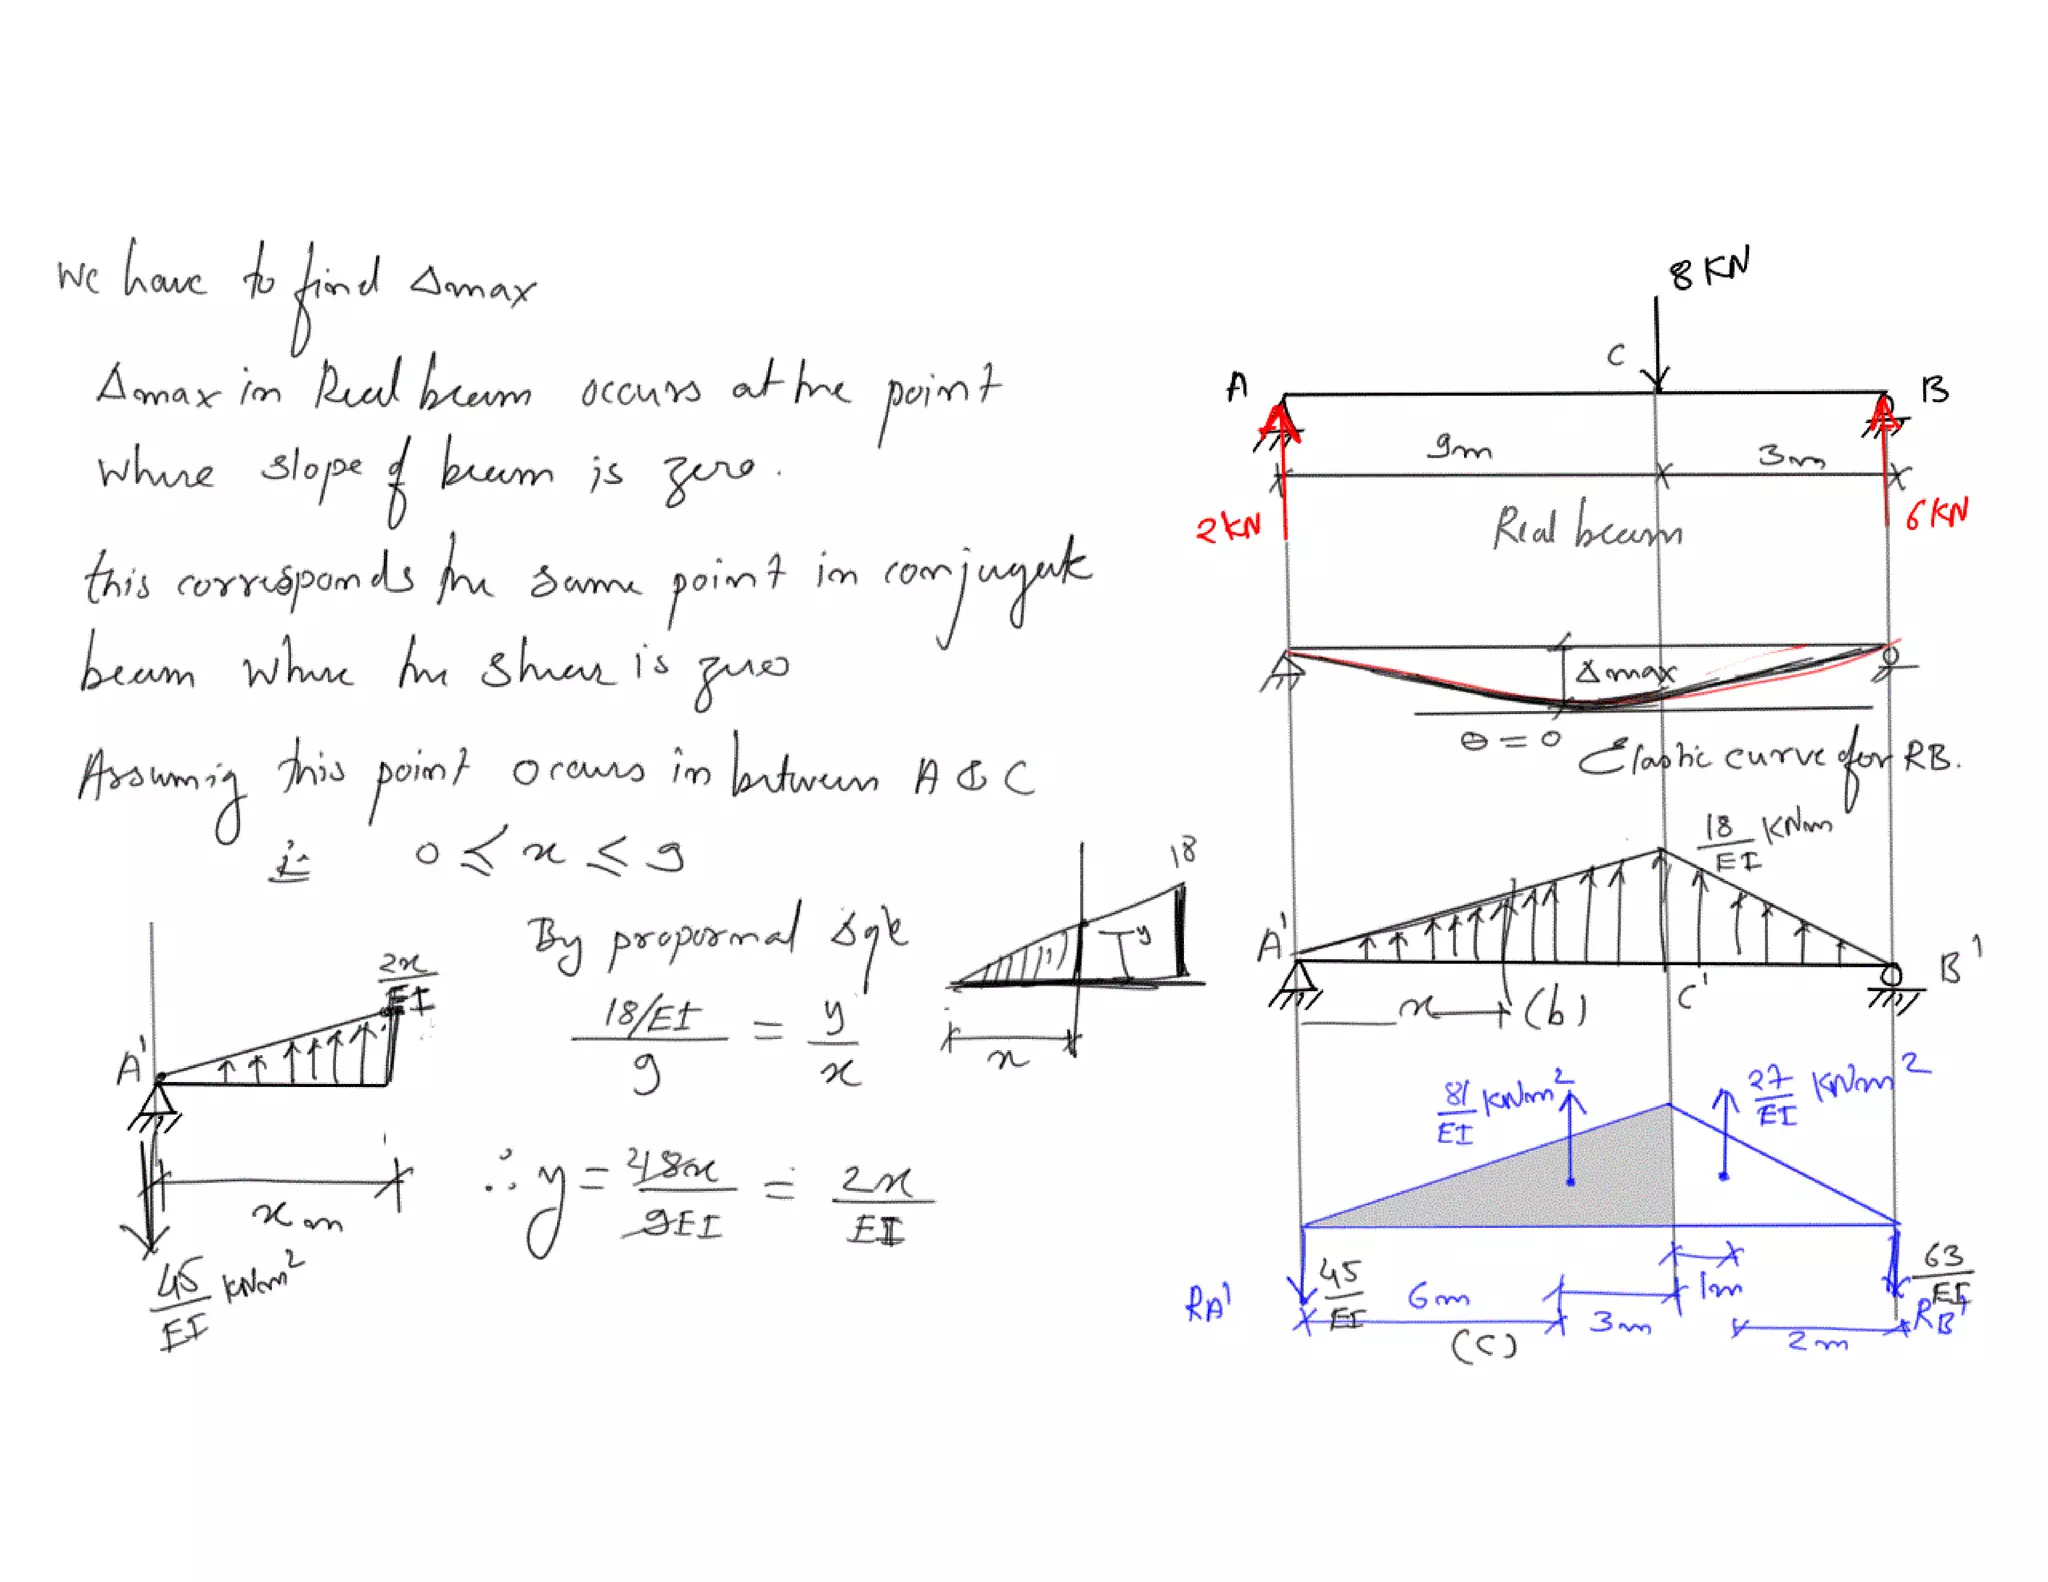 we have to find Δmax
Δmax in Real beam occurs at the point
where slope of beam is zero.
this corresponds the same point in conjugate
beam where the shear is zero
Assuming this point occurs in between A & C
ie 0 ≤ x ≤ 9
By proportional Sqle
18/EI / 9 = y / x
∴ y = 18x / 9EI = 2x / EI
18
y
x
2x / EI
A'
x m
45 / EI kNm²
8 KN
A
C
B
9m
3m
2KN
Real beam
6KN
Δmax
θ = 0
Elastic curve for RB.
18 / EI KNm
A'
B'
x
(b)
C'
81 / EI KNm²
27 / EI KNm²
RA'
45 / EI
6m
3m
1m
2m
63 / EI
RB'
(C)